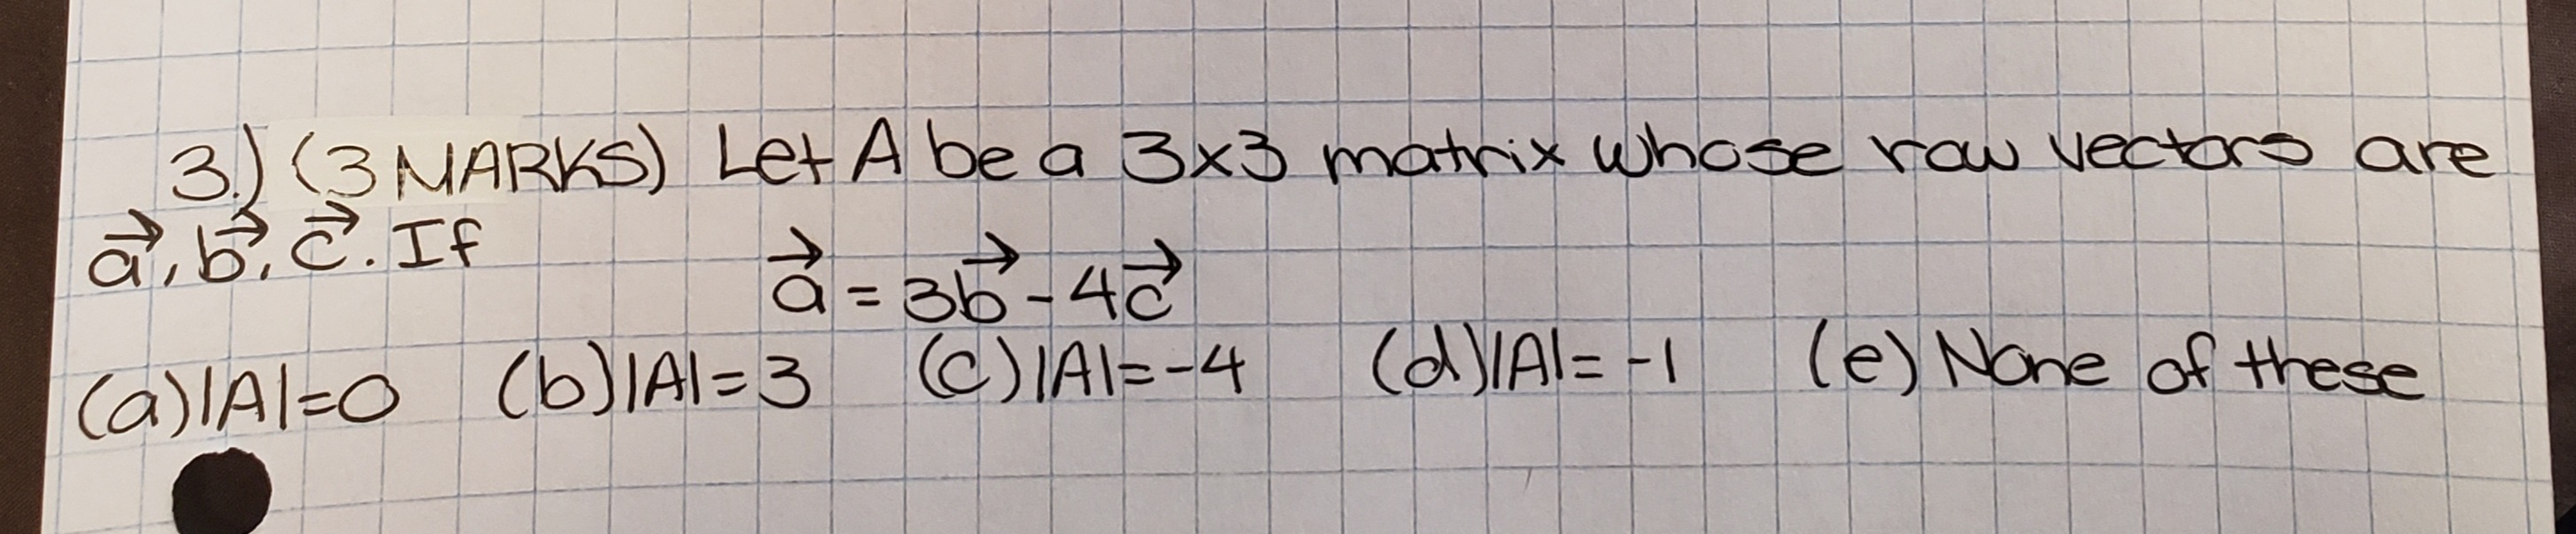 3.) (3 MARKS) Let A be a 3x3 matrix whose row vectors are
a⃗, b⃗, c⃗. If
a⃗ = 3b⃗ - 4c⃗
(a) |A|=0 (b) |A|=3 (c) |A|=-4 (d) |A|=-1 (e) None of these